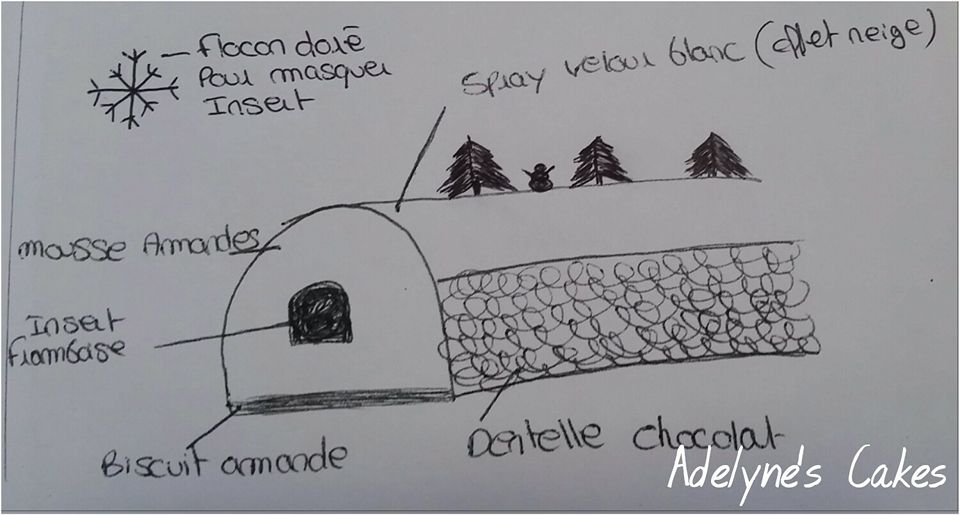 flocon doré
Pour masquer
Insert
Spray velour blanc (effet neige)
mousse Amandes
Insert
framboise
Biscuit amande
Dentelle chocolat
Adelyne's Cakes